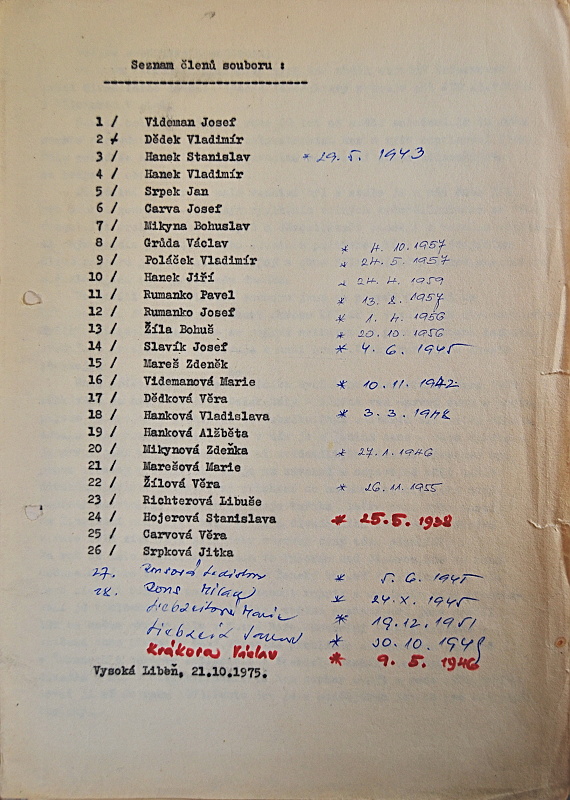 Seznam členů souboru :
1 / Videman Josef
2 / Dědek Vladimír
3 / Hanek Stanislav * 29. 5. 1943
4 / Hanek Vladimír
5 / Srpek Jan
6 / Carva Josef
7 / Mikyna Bohuslav
8 / Grůda Václav * 4. 10. 1957
9 / Poláček Vladimír * 24. 5. 1957
10 / Hanek Jiří * 24. 4. 1959
11 / Rumanko Pavel * 13. 2. 1957
12 / Rumanko Josef * 1. 4. 1956
13 / Žíla Bohuš * 20. 10. 1956
14 / Slavík Josef * 4. 6. 1945
15 / Mareš Zdeněk
16 / Videmanová Marie * 10. 11. 1942
17 / Dědková Věra
18 / Hanková Vladislava * 3. 3. 1948
19 / Hanková Alžběta
20 / Mikynová Zdeňka * 27. 1. 1946
21 / Marešová Marie
22 / Žílová Věra * 26. 11. 1955
23 / Richterová Libuše
24 / Hojerová Stanislava * 25. 5. 1938
25 / Carvová Věra
26 / Srpková Jitka
27. * 5. 6. 1945
28. Rons Milan * 24. X. 1945
Liebzeitová Marie * 19. 12. 1951
Liebzeit * 30. 10. 1948
Krákora Václav * 9. 5. 1946
Vysoká Liběň, 21.10.1975.